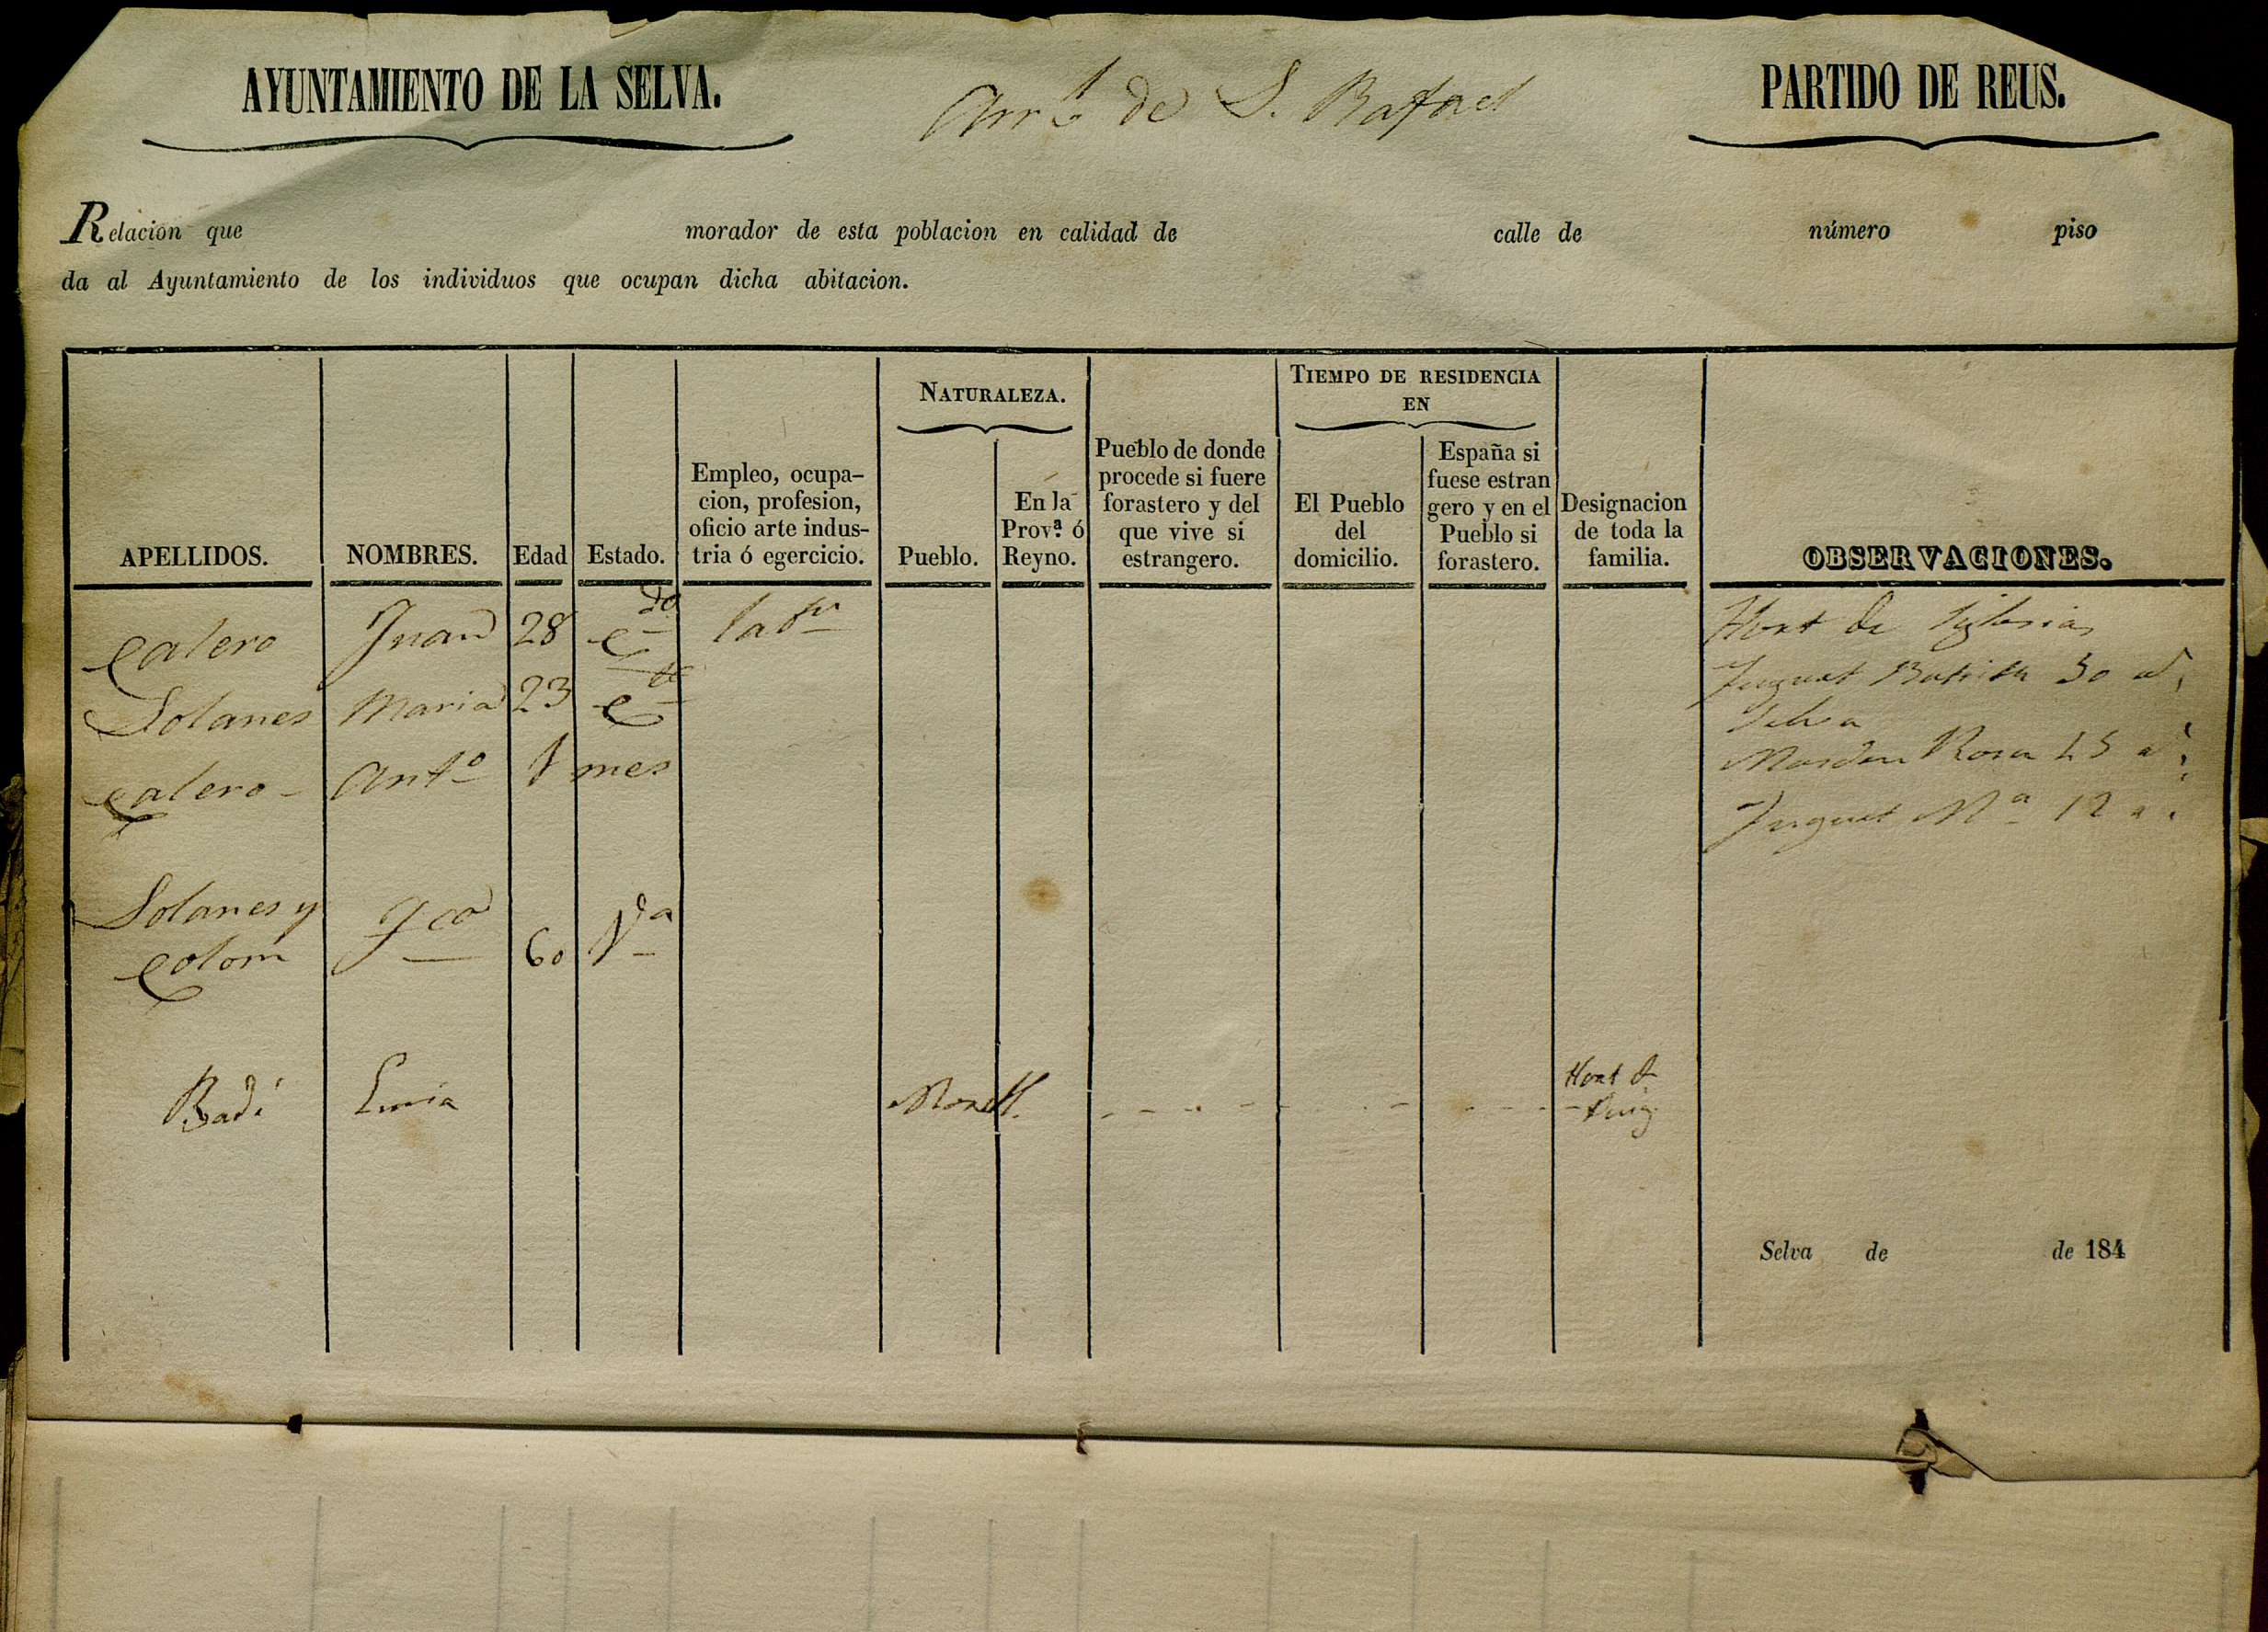 AYUNTAMIENTO DE LA SELVA.
Arr.l de S. Rafael
PARTIDO DE REUS.
Relacion que morador de esta poblacion en calidad de calle de número piso
da al Ayuntamiento de los individuos que ocupan dicha abitacion.
APELLIDOS.
NOMBRES.
Edad
Estado.
Empleo, ocupa-
cion, profesion,
oficio arte indus-
tria ó egercicio.
NATURALEZA.
Pueblo.
En la
Prov.ª ó
Reyno.
Pueblo de donde
procede si fuere
forastero y del
que vive si
estrangero.
TIEMPO DE RESIDENCIA
EN
El Pueblo
del
domicilio.
España si
fuese estran
gero y en el
Pueblo si
forastero.
Designacion
de toda la
familia.
OBSERVACIONES.
Calero Juan 28 C.do lab.r
Solanes Maria 23 C.
Calero - Ant.o 1 mes
Solanes y
Colom 60 V.da
Badí Morell.
Hort de Iglesias
Batista 50 a.
Selva
Rosa 45 a.
M.a 12 a.
Hort d.
Puig
Selva de de 184